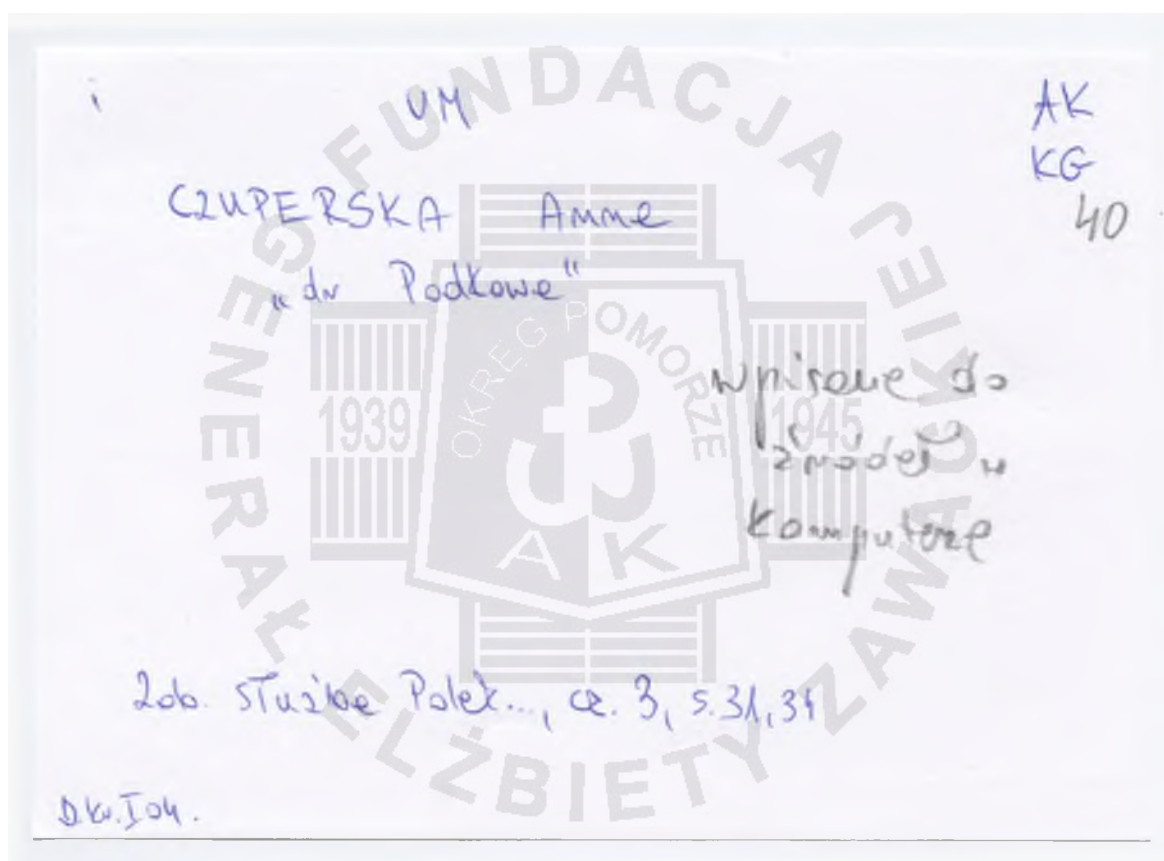 i
VM
AK
KG
40
CZUPERSKA Anna
„dr Podkowa"
wpisane do
źródeł w
komputerze
Zob. Służba Polek..., cz. 3, s. 31, 34
D.kw.I 04.
FUNDACJA
GENERAŁ ELŻBIETY ZAWACKIEJ
OKRĘG POMORZE
1939
1945
AK